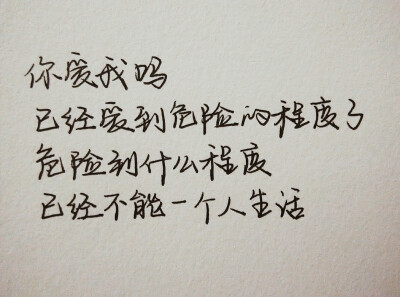 你爱我吗
已经爱到危险的程度了
危险到什么程度
已经不能一个人生活